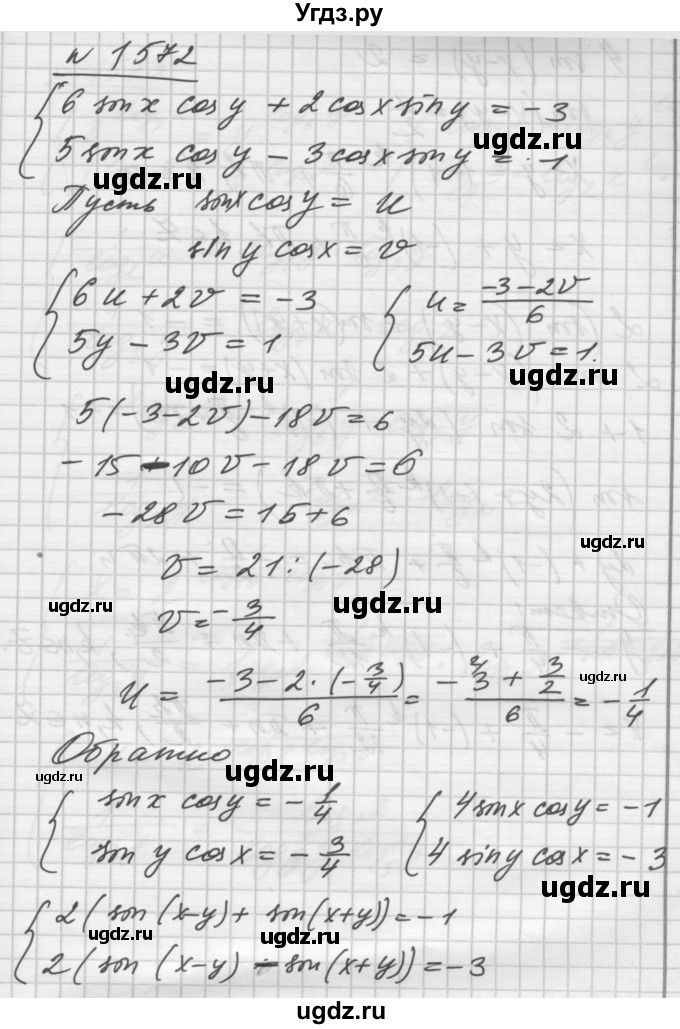 Угдз.ру
N 1572
{ 6 sin x cos y + 2 cos x sin y = -3
5 sin x cos y - 3 cos x sin y = 1
ugdz.ru
ugdz.ru
Пусть sin x cos y = u
sin y cos x = v
ugdz.ru
{ 6u + 2v = -3
5y - 3v = 1
{ u = (-3-2v)/6
5u - 3v = 1.
ugdz.ru
ugdz.ru
5(-3-2v)-18v=6
-15-10v-18v=6
-28v=15+6
ugdz.ru
v = 21:(-28)
ugdz.ru
ugdz.ru
v = -3/4
u = (-3-2·(-3/4))/6 = (-3+3/2)/6 = -1/4
ugdz.ru
Обратно
ugdz.ru
ugdz.ru
{ sin x cos y = -1/4
sin y cos x = -3/4
{ 4 sin x cos y = -1
4 sin y cos x = -3
ugdz.ru
{ 2(sin(x-y)+ sin(x+y))=-1
ugdz.ru
2(sin (x-y) - sin(x+y))=-3
ugdz.ru
ugdz.ru